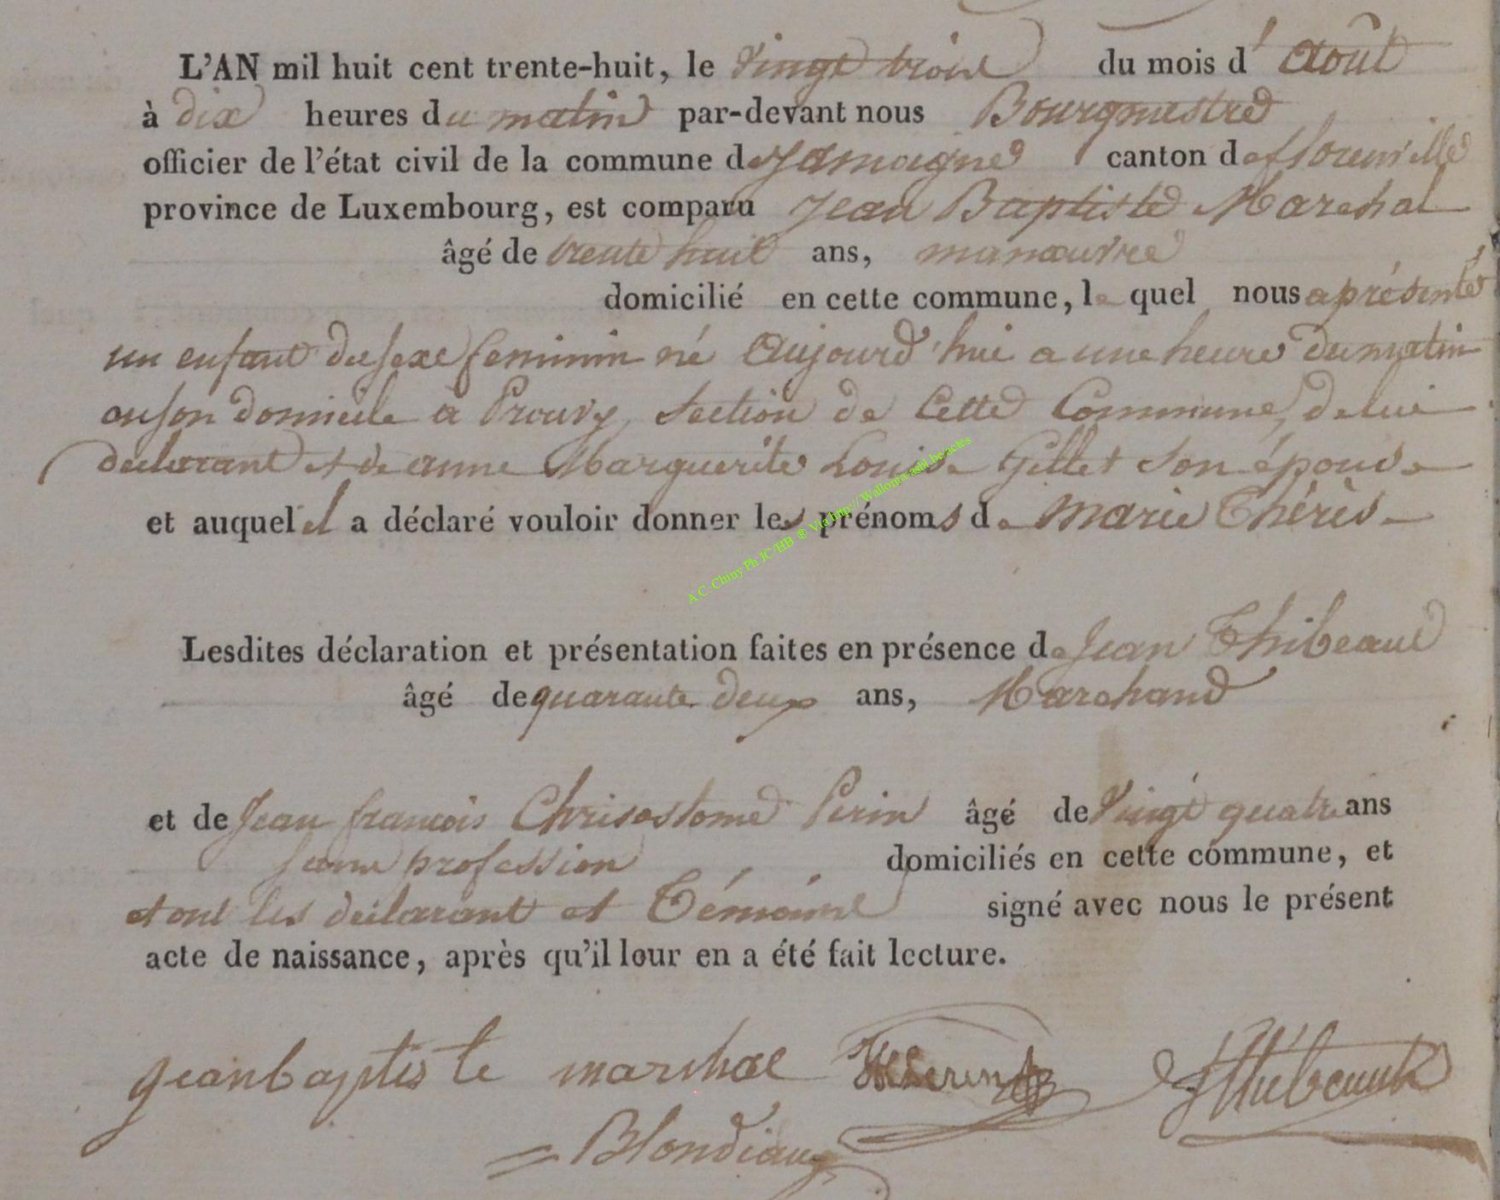 L'AN mil huit cent trente-huit, le Vingt trois du mois d'Août
à dix heures du matin par-devant nous Bourgmestre
officier de l'état civil de la commune de Jamoigne canton de florenville
province de Luxembourg, est comparu Jean Baptiste Marchal
âgé de trente huit ans, manœuvre
domicilié en cette commune, le quel nous a présenté
un enfant du sexe feminin né Aujourd'hui a une heure du matin
en son domicile à Prouvy, Section de Cette Commune, de lui
declarant et de anne Marguerite Louise Gillet son épouse
et auquel il a déclaré vouloir donner les prénoms de Marie Thérèse
Lesdites déclaration et présentation faites en présence de Jean Thibeaud
âgé de quarante deux ans, Marchand
et de Jean françois Chrisostome Perin âgé de Vingt quatre ans
sans profession domiciliés en cette commune, et
et ont les déclarant et Témoins signé avec nous le présent
acte de naissance, après qu'il leur en a été fait lecture.
jeanbaptiste marchal Perin JThibeault
Blondiaux